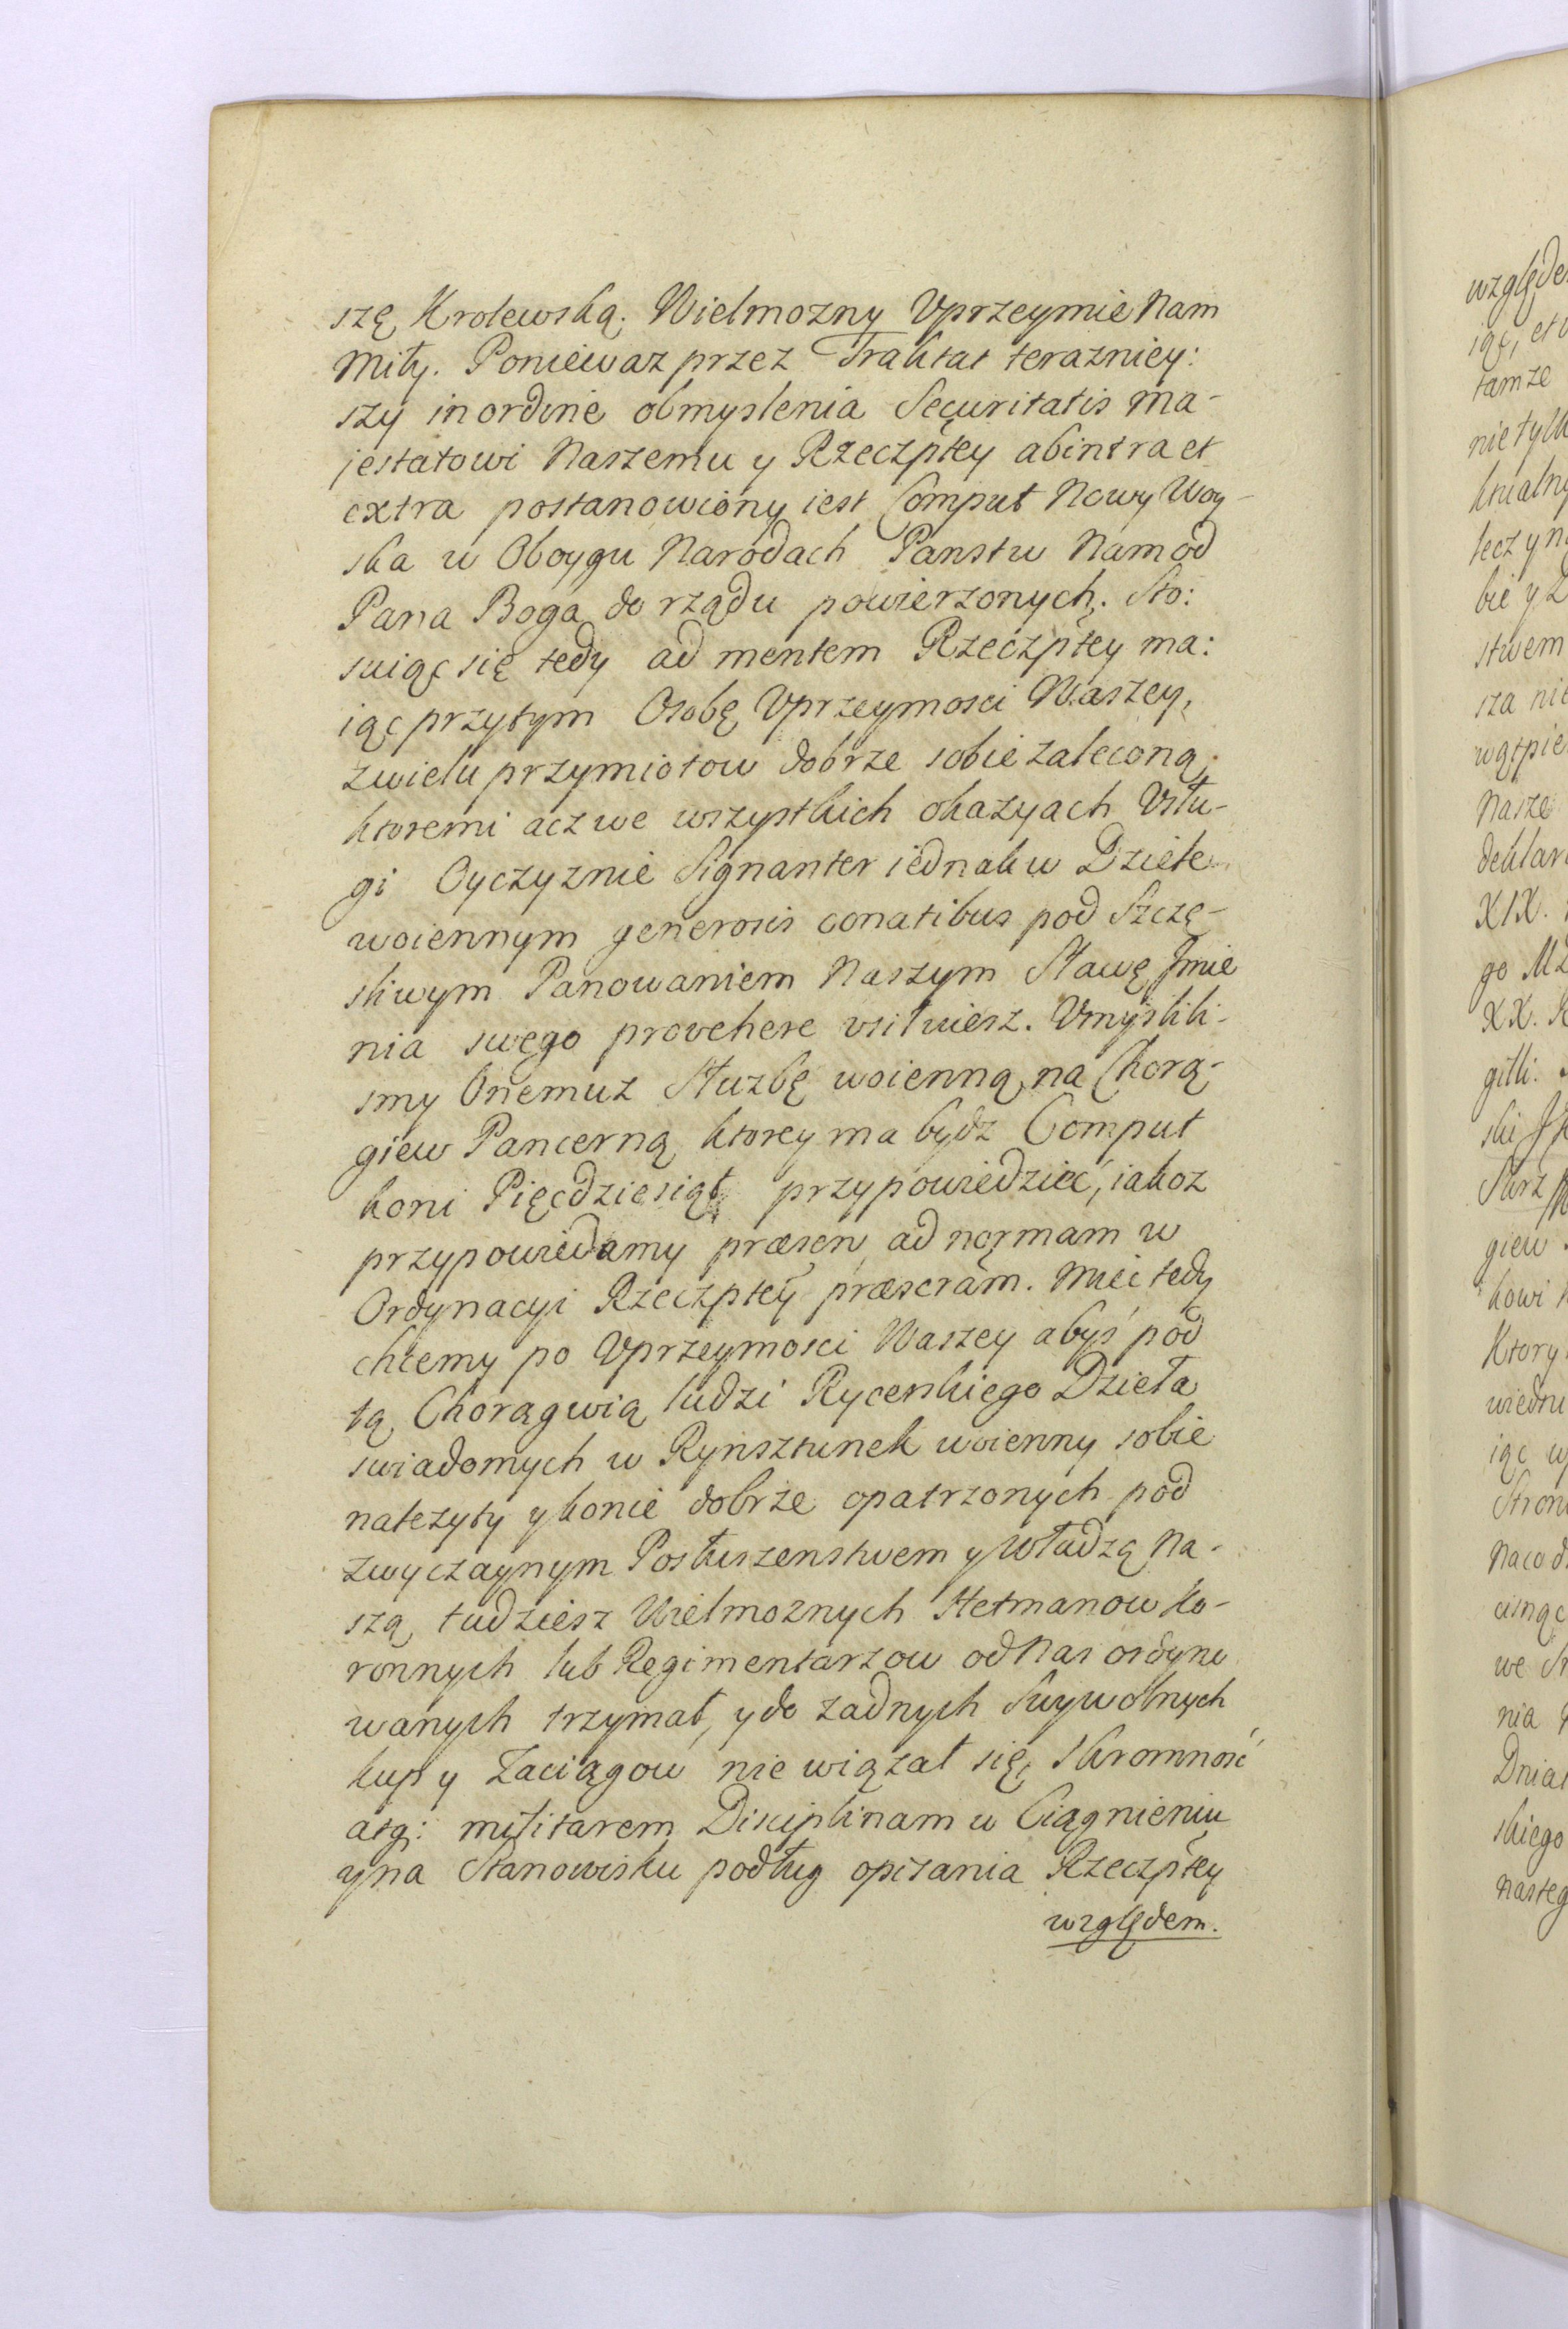 szę Krolewską. Wielmozny Vprzeymie Nam
Miły. Poniewaz przez Traktat terazniey:
szy in ordine obmyslenia Securitatis Ma-
jestatowi Naszemu y Rzeczpłey abintra et
extra postanowiony iest Comput Nowy Woy-
ska w Oboygu Narodach Panstw Nam od
Pana Boga do rządu powierzonych. Sto:
suiąc się tedy ad mentem Rzeczpłey ma:
iąc przytym Osobę Vprzeymosci Waszey,
zwielu przymiotow dobrze sobie zaleconą,
ktoremi acz we wszystkich okazyach Vsłu-
gi Oyczyznie Signanter iednak w Dziele
woiennym generosis conatibus pod Szczę-
sliwym Panowaniem Naszym Sławę Imie
nia swego provehere vsiłuiesz. Vmyslili-
smy Onemuz Słuzbę woienną na Chorą-
giew Pancerną ktorey ma bydz Comput
koni Pięcdziesiąt przypowiedzieć, iakoz
przypowiedamy præsen ad normam w
Ordynacyi Rzeczpłey præscram. Miec tedy
chcemy po Vprzeymosci Waszey abyś pod
tą Chorągwią ludzi Rycerskiego Dzieła
swiadomych w Rynsztunek woienny sobie
nalezyty y konie dobrze opatrzonych pod
zwyczaynym Posłuszenstwem y Władzą Na-
szą tudziesz Wielmoznych Hetmanow Ko-
ronnych lub Regimentarzow od Nas ordyno
wanych trzymał, y do zadnych Swywolnych
kup y Zaciągow nie wiązał się, Skromność
atq: militarem Disciplinam w Ciągnieniu
y na Stanowisku podług opisania Rzeczpłey
względem.
względe
tamze
nie tylk
ktualny
lecz y n
bie y D
stwem
sza nie
wątpie
Nasze
deklar
XIX.
go
XX.
gilli.
ski
giew
kowi
Ktory
iąc
Stron
we
nia
Dnia
skiego